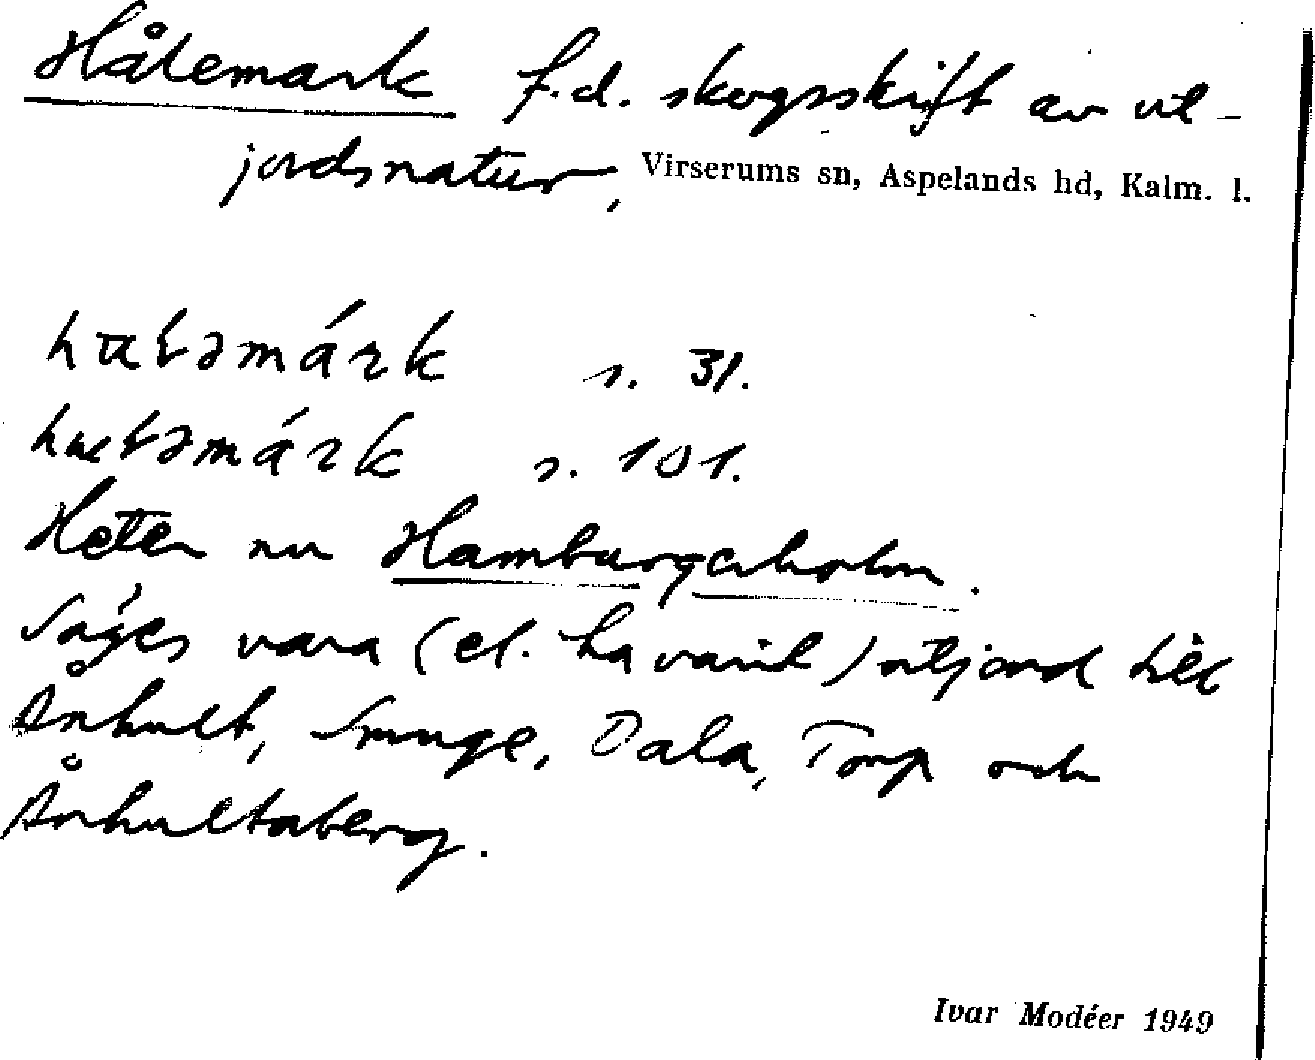 Hålemark f.d. skogsskift av ut-
jordsnatur, Virserums sn, Aspelands hd, Kalm. l.
s. 31.
s. 101.
Heter nu Hamburgerholm.
Säges vara (el. ha varit) utjord till
Århult, Smuge, Dala, Torp och
Århultaberg.
Ivar Modéer 1949